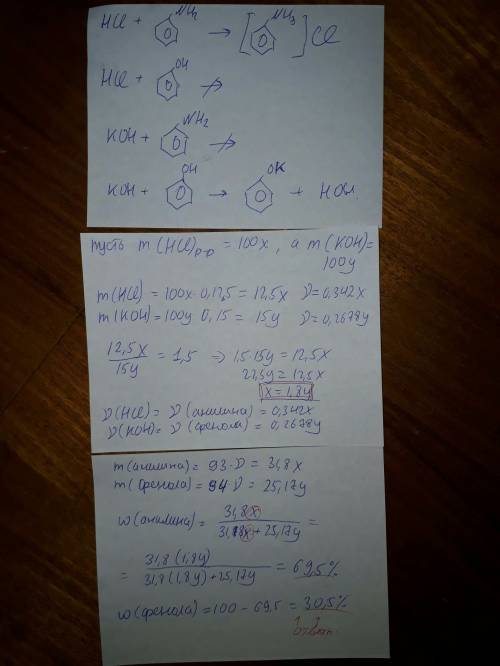 HCl + NH₂ → [ NH₃ ] Cl
HCl + OH ↛
KOH + NH₂ ↛
KOH + OH → OK + HOH.
пусть m(HCl)р-р = 100x, а m(KOH)=
100y
m(HCl) = 100x·0,125 = 12,5x ν=0,342x
m(KOH)=100y 0,15 = 15y ν=0,2678y
12,5x / 15y = 1,5 ⇒ 1,5·15y = 12,5x
22,5y = 12,5x
x = 1,8y
ν(HCl) = ν(анилина) = 0,342x
ν(KOH) = ν(фенола) = 0,2678y
m(анилина) = 93·ν = 31,8x
m(фенола) = 94·ν = 25,17y
w(анилина) = 31,8x / 31,8x + 25,17y =
= 31,8(1,8y) / 31,8(1,8y)+25,17y = 69,5%
w(фенола) = 100 - 69,5 = 30,5%